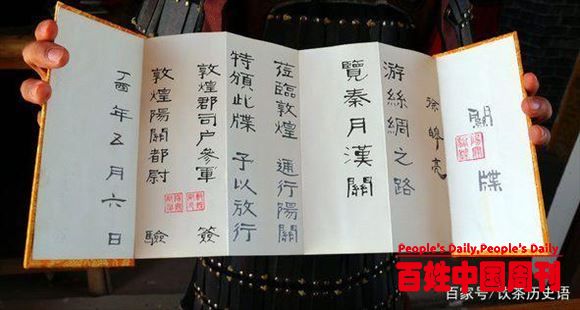 關牒
徐 亮
游絲綢之路
覽秦月漢關
蒞臨敦煌 通行陽關
特頒此牒 予以放行
敦煌郡司户參軍 簽
敦煌陽關都尉 驗
丁酉年五月六日
People's Daily,People's Daily
百姓中国周刊
百家号/饮茶历史语